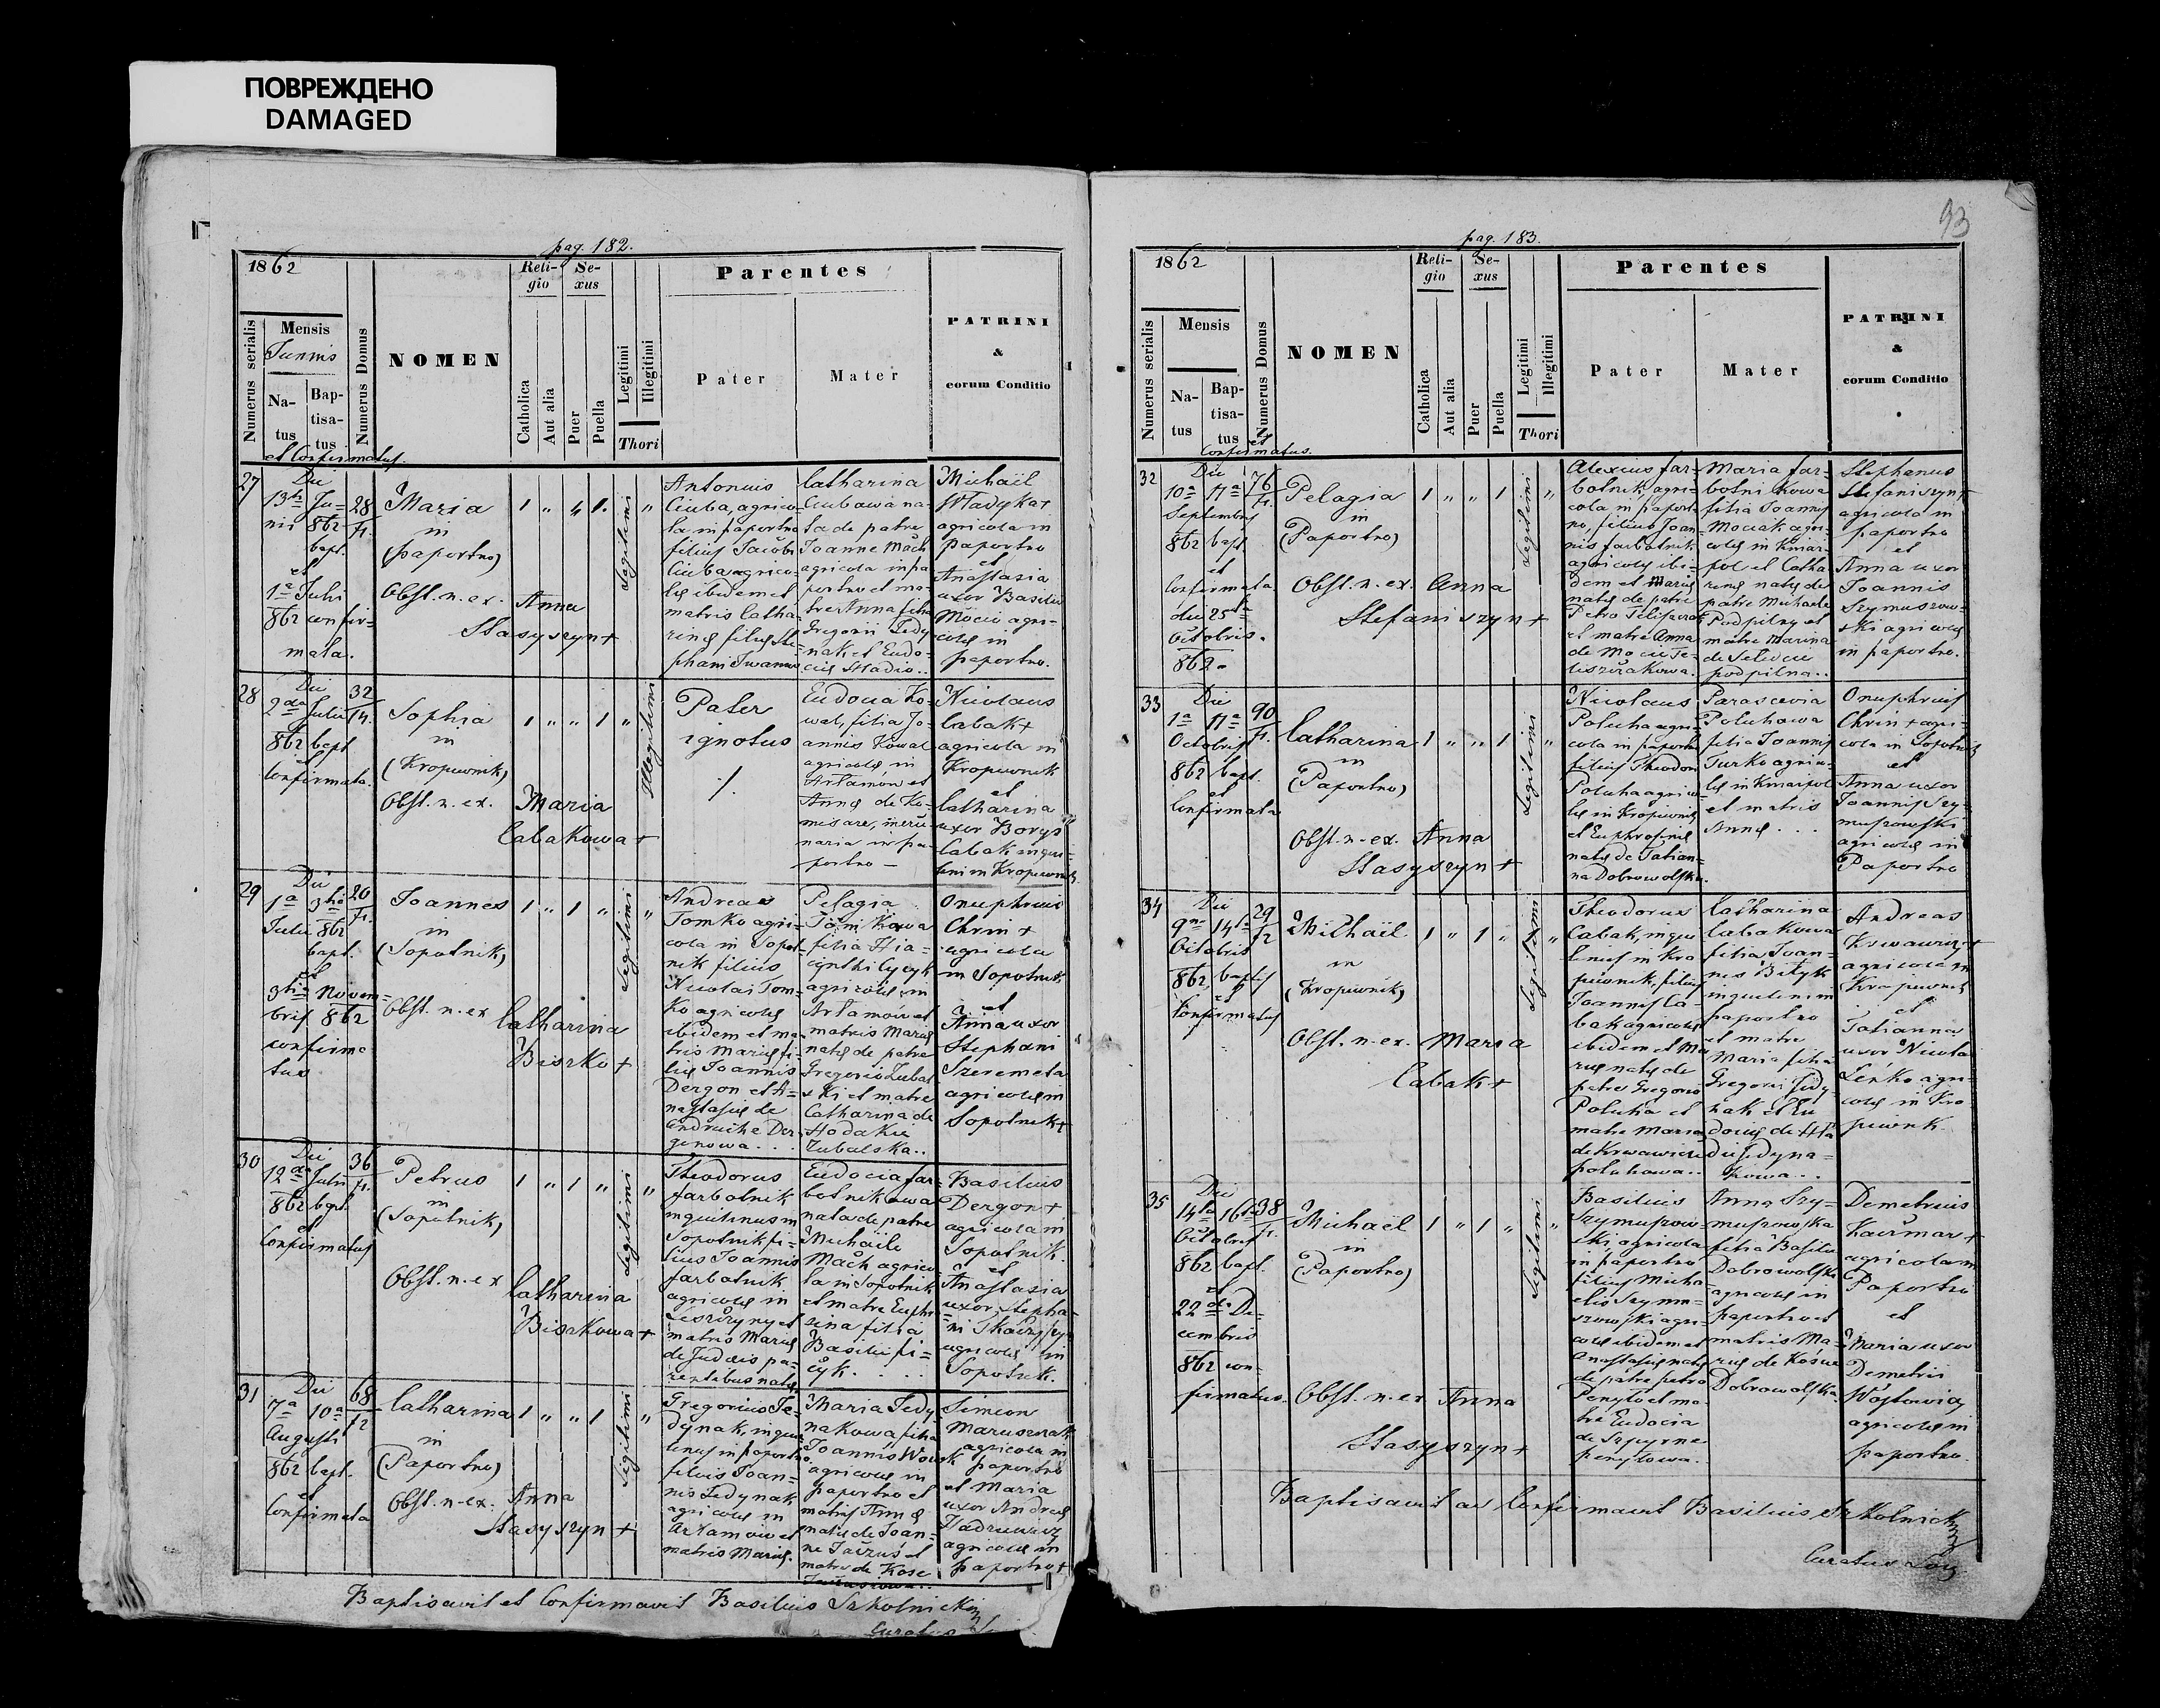 ПОВРЕЖДЕНО
DAMAGED
93
pag. 182.
1862
Numerus serialis
Mensis
Junius
Na-
tus
Bap-
tisa-
tus
et Confirmatus.
Numerus Domus
NOMEN
Reli-
gio
Catholica
Aut alia
Se-
xus
Puer
Puella
Legitimi
Illegitimi
Thori
Parentes
Pater
Mater
PATRINI
&
eorum Conditio
27
Die
13
Ju-
nii 862
bapt.
et
1a Julii
862 confir-
mata.
28
Maria
in
(paportno)
Obst. n. ex. Anna
Stasyszyn +
1 " " 1.
Legitimi
"
Antonius
Ciuba, agrico-
la in paportno
filius Jacobi
Ciuba agrico-
lae ibidem et
matris Catha-
rinae
Catharina
Ciubowa na-
ta de patre
Joanne Mach
agricola in pa-
portno et ma-
tre Anna filia
Gregorii Fedy-
nak et Eudo-
ciae
Michaël
Wladyka +
agricola in
paportno
et
Anastasia
uxor Basilii
agri-
colae in
paportno.
28
Die
2da Julii
862 bapt
et
Confirmata.
32
Sophia
in
(Kropiwnik)
Obst. n. ex. Maria
Cabakowa +
1 " " 1 "
Illegitimi
Pater
ignotus
./.
Eudocia Ko-
wal, filia Jo-
annis Kowal
agricolae in
Artamów et
Annae de Ko-
in pa-
portno –
Nicolaus
Cabak +
agricola in
Kropiwnik
et
Catharina
uxor Borys
Cabak inqui-
lini in Kropiwnik
29
Die
1a 3tia
Julii 862
bapt.
et
3tia Novem-
bris 862
confirma
tus
20
Joannes
in
(Sopotnik)
Obst. n. ex Catharina
Biszko +
1 " 1 "
Legitimi
"
Andreas
Tomko agri-
cola in Sopot-
nik filius
Nicolai Tom-
ko agricolae
ibidem et ma-
tris Mariae fi-
liae Joannis
Dergon et A-
nastasiae de
Pelagia
Tomkowa
filia Hia-
cynthi Cycyk
agricolae in
Artamów et
matris Mariae
natae de patre
Gregorio Zubal
ski et matre
Catharina de
Zubalska..
Onuphrius
Chrin +
agricola
in Sopotnik
et
Anna uxor
Stephani
Szeremeta
agricolae in
Sopotnik +
30
Die
12da Julii
862 bapt.
et
Confirmatus
36
Petrus
in
(Sopotnik)
Obst. n. ex
Catharina
Biszkowa +
1 " 1 "
Legitimi
"
Theodorus
farbotnik
inquilinus in
Sopotnik fi-
lius Joannis
farbotnik
agricolae in
matris Mariae
de Judaeis pa-
rentibus natae
Eudocia far-
botnikowa
nata de patre
Michaele
Mach agrico-
la in Sopotnik
et matre Euphro
sina filia
Basilii
Basilius
Dergon +
agricola in
Sopotnik.
et
Anastasia
uxor Stepha-
ni
agricolae in
Sopotnik.
31
Die
7a 10a
Augusti
862 bapt.
et
Confirmata
68
Catharina
in
(Paportno)
Obst. n. ex. Anna
Stasyszyn +
1 " " 1
Legitimi
"
Gregorius Fe-
dynak, inqui-
linus in paportno
filius Joan-
nis Fedynak
agricolae in
Artamów et
matris Mariae.
Maria Fedy-
nakowa filia
Joannis
agricolae in
paportno et
matris Annae
natae de Joan-
ne
matre de
Simeon
Maruszczak
agricola in
paportno
et Maria
uxor Andreae
agricolae in
paportno +
Baptisavit et Confirmavit Basilius Szkolnicki
pag. 183.
1862
Numerus serialis
Mensis
Na-
tus
Bap-
tisa-
tus
et
Confirmatus.
Numerus Domus
NOMEN
Reli-
gio
Catholica
Aut alia
Se-
xus
Puer
Puella
Legitimi
Illegitimi
Thori
Parentes
Pater
Mater
PATRINI
&
eorum Conditio
32
Die
10a 17a
Septembris
862 bapt.
et
Confirmata
die 25ta
Octobris.
862.
76
Pelagia
in
(Paportno)
Obst. n. ex. Anna
Stefaniszyn +
1 " " 1
Legitimi
"
Alexius far-
botnik, agri-
cola in paport-
no, filius Joan-
nis farbotnik
agricolae ibi-
dem et Mariae
natae de patre
Petro
et matre Anna
Maria far-
botnikowa
filia Joannis
agri-
colae in
et Catha
rinae natae de
patre Michaele
Podpilny et
matre Marina
podpilna..
Stephanus
Stefaniszyn +
agricola in
paportno
et
Anna uxor
Joannis
Szymuszow-
ski agricolae
in paportno.
33
Die
1a 17a
Octobris
862 bapt.
et
Confirmata
90
Catharina
in
(Paportno)
Obst. n. ex. Anna
Stasyszyn +
1 " " 1
Legitimi
"
Nicolaus
Poluha agri-
cola in paportno
filius Theodori
Poluha agrico-
lae in Kropiwnik
et Euphrosinae
natae de Tatian-
na Dobrowolska.
Parascevia
Poluhowa
filia Joannis
Turko agrico-
lae in
et matris
Annae . . .
Onuphrius
Chrin + agri-
cola in Sopotnik
et
Anna uxor
Joannis Szy-
muszowski
agricolae in
Paportno
34
Die
9na 14ta
Octobris
862 baptis
et
Confirmatus
29
Michaël
in
(Kropiwnik)
Obst. n. ex. Maria
Cabak +
1 " 1 "
Legitimi
"
Theodorus
Cabak, inqui
linus in Kro
piwnik, filius
Joannis Ca-
bak agricolae
ibidem et Ma
riae natae de
patre Gregorio
Poluha et
matre Maria
poluhowa..
Catharina
Cabakowa
filia Joan-
nis Bityk
inquilini in
paportno
et matre
Maria filia
Gregorii Fedy
nak et Eu
dociae de
Andreas
agricola in
Kropiwnik
et
Tatianna
uxor Nicolai
Leńko agri-
colae in Kro
piwnik.
35
Die
14ta 16ta
Octobris
862 bapt.
et
22da De-
cembris
862 con-
firmatus.
38
Michaël
in
(Paportno)
Obst. n. ex Anna
Stasyszyn +
1 " 1 "
Legitimi
"
Basilius
Szymuszow-
ski agricola
in paportno
filius Micha-
elis Szymu-
szowski agri-
colae ibidem et
Anastasiae natae
de patre Petro
Penylo et ma-
tre Eudocia
Anna Szy-
muszowska
filia Basilii
Dobrowolski
agricolae in
paportno et
matris Ma-
riae de
Dobrowolska.
Demetrius
Kaczmar +
agricola in
Paportno
et
Maria uxor
Demetrii
Wojtowicz
agricolae in
paportno.
Baptisavit ac Confirmavit Basilius Szkolnicki
Curatus Loci